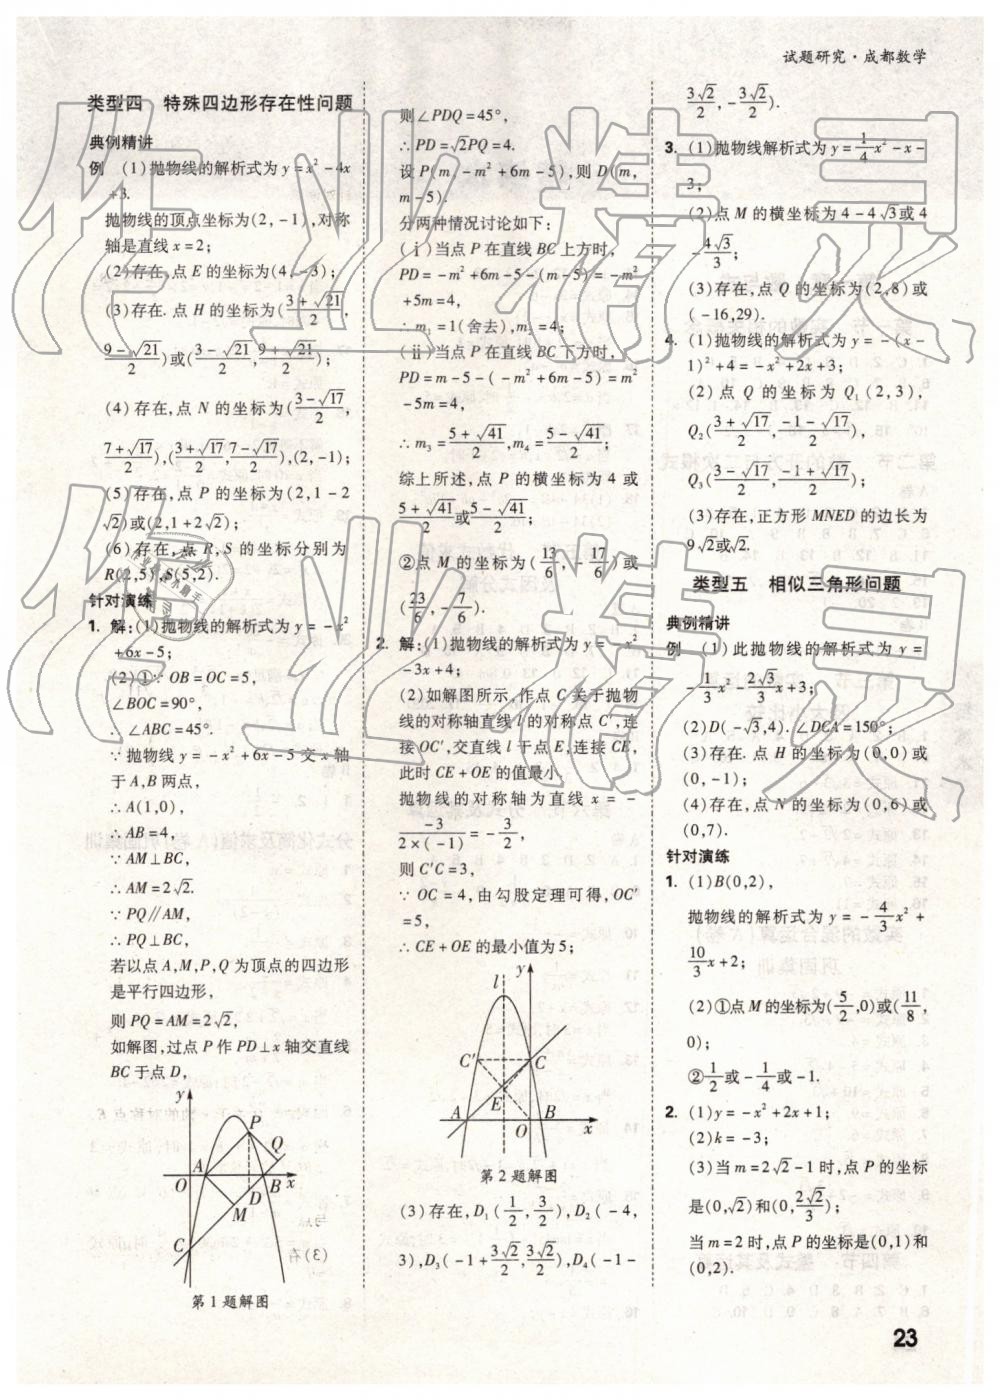 试题研究·成都数学
类型四 特殊四边形存在性问题
典例精讲
例 (1)抛物线的解析式为y=x²-4x
+3.
抛物线的顶点坐标为(2,-1),对称
轴是直线x=2;
(2)存在,点E的坐标为(4,-3);
(3)存在.点H的坐标为(\frac{3+√21}{2},
\frac{9-√21}{2})或(\frac{3-√21}{2},\frac{9+√21}{2});
(4)存在,点N的坐标为(\frac{3-√17}{2},
\frac{7+√17}{2}),(\frac{3+√17}{2},\frac{7-√17}{2}),(2,-1);
(5)存在,点P的坐标为(2,1-2
√2)或(2,1+2√2);
(6)存在,点R,S的坐标分别为
R(2,5),S(5,2).
针对演练
1. 解:(1)抛物线的解析式为y=-x²
+6x-5;
(2)①∵OB=OC=5,
∠BOC=90°,
∴∠ABC=45°.
∵抛物线y=-x²+6x-5交x轴
于A,B两点,
∴A(1,0),
∴AB=4,
∵AM⊥BC,
∴AM=2√2.
∵PQ∥AM,
∴PQ⊥BC,
若以点A,M,P,Q为顶点的四边形
是平行四边形,
则PQ=AM=2√2,
如解图,过点P作PD⊥x轴交直线
BC于点D,
y
P
Q
A
O B x
D
M
C
第1题解图
则∠PDQ=45°,
∴PD=√2PQ=4.
设P(m,-m²+6m-5),则D(m,
m-5).
分两种情况讨论如下:
(ⅰ)当点P在直线BC上方时,
PD=-m²+6m-5-(m-5)=-m²
+5m=4,
∴m₁=1(舍去),m₂=4;
(ⅱ)当点P在直线BC下方时,
PD=m-5-(-m²+6m-5)=m²
-5m=4,
∴m₃=\frac{5+√41}{2},m₄=\frac{5-√41}{2};
综上所述,点P的横坐标为4或
\frac{5+√41}{2}或\frac{5-√41}{2};
②点M的坐标为(\frac{13}{6},-\frac{17}{6})或
(\frac{23}{6},-\frac{7}{6}).
2. 解:(1)抛物线的解析式为y=-x²
-3x+4;
(2)如解图所示,作点C关于抛物
线的对称轴直线l的对称点C′,连
接OC′,交直线l于点E,连接CE,
此时CE+OE的值最小.
抛物线的对称轴为直线x=-
\frac{-3}{2×(-1)}=-\frac{3}{2},
则C′C=3,
∵OC=4,由勾股定理可得,OC′
=5,
∴CE+OE的最小值为5;
l y
C′ C
E
A O B x
第2题解图
(3)存在,D₁(\frac{1}{2},\frac{3}{2}),D₂(-4,
3),D₃(-1+\frac{3√2}{2},\frac{3√2}{2}),D₄(-1-
\frac{3√2}{2},-\frac{3√2}{2}).
3. (1)抛物线解析式为y=\frac{1}{4}x²-x-
3;
(2)点M的横坐标为4-4√3或4
-\frac{4√3}{3};
(3)存在,点Q的坐标为(2,8)或
(-16,29).
4. (1)抛物线的解析式为y=-(x-
1)²+4=-x²+2x+3;
(2)点Q的坐标为Q₁(2,3),
Q₂(\frac{3+√17}{2},\frac{-1-√17}{2}),
Q₃(\frac{3-√17}{2},\frac{-1+√17}{2});
(3)存在,正方形MNED的边长为
9√2或√2.
类型五 相似三角形问题
典例精讲
例 (1)此抛物线的解析式为y=
-\frac{1}{3}x²-\frac{2√3}{3}x+3;
(2)D(-√3,4).∠DCA=150°;
(3)存在.点H的坐标为(0,0)或
(0,-1);
(4)存在,点N的坐标为(0,6)或
(0,7).
针对演练
1. (1)B(0,2),
抛物线的解析式为y=-\frac{4}{3}x²+
\frac{10}{3}x+2;
(2)①点M的坐标为(\frac{5}{2},0)或(\frac{11}{8},
0);
②\frac{1}{2}或-\frac{1}{4}或-1.
2. (1)y=-x²+2x+1;
(2)k=-3;
(3)当m=2√2-1时,点P的坐标
是(0,√2)和(0,\frac{2√2}{3});
当m=2时,点P的坐标是(0,1)和
(0,2).
23
作业精灵
作业精灵